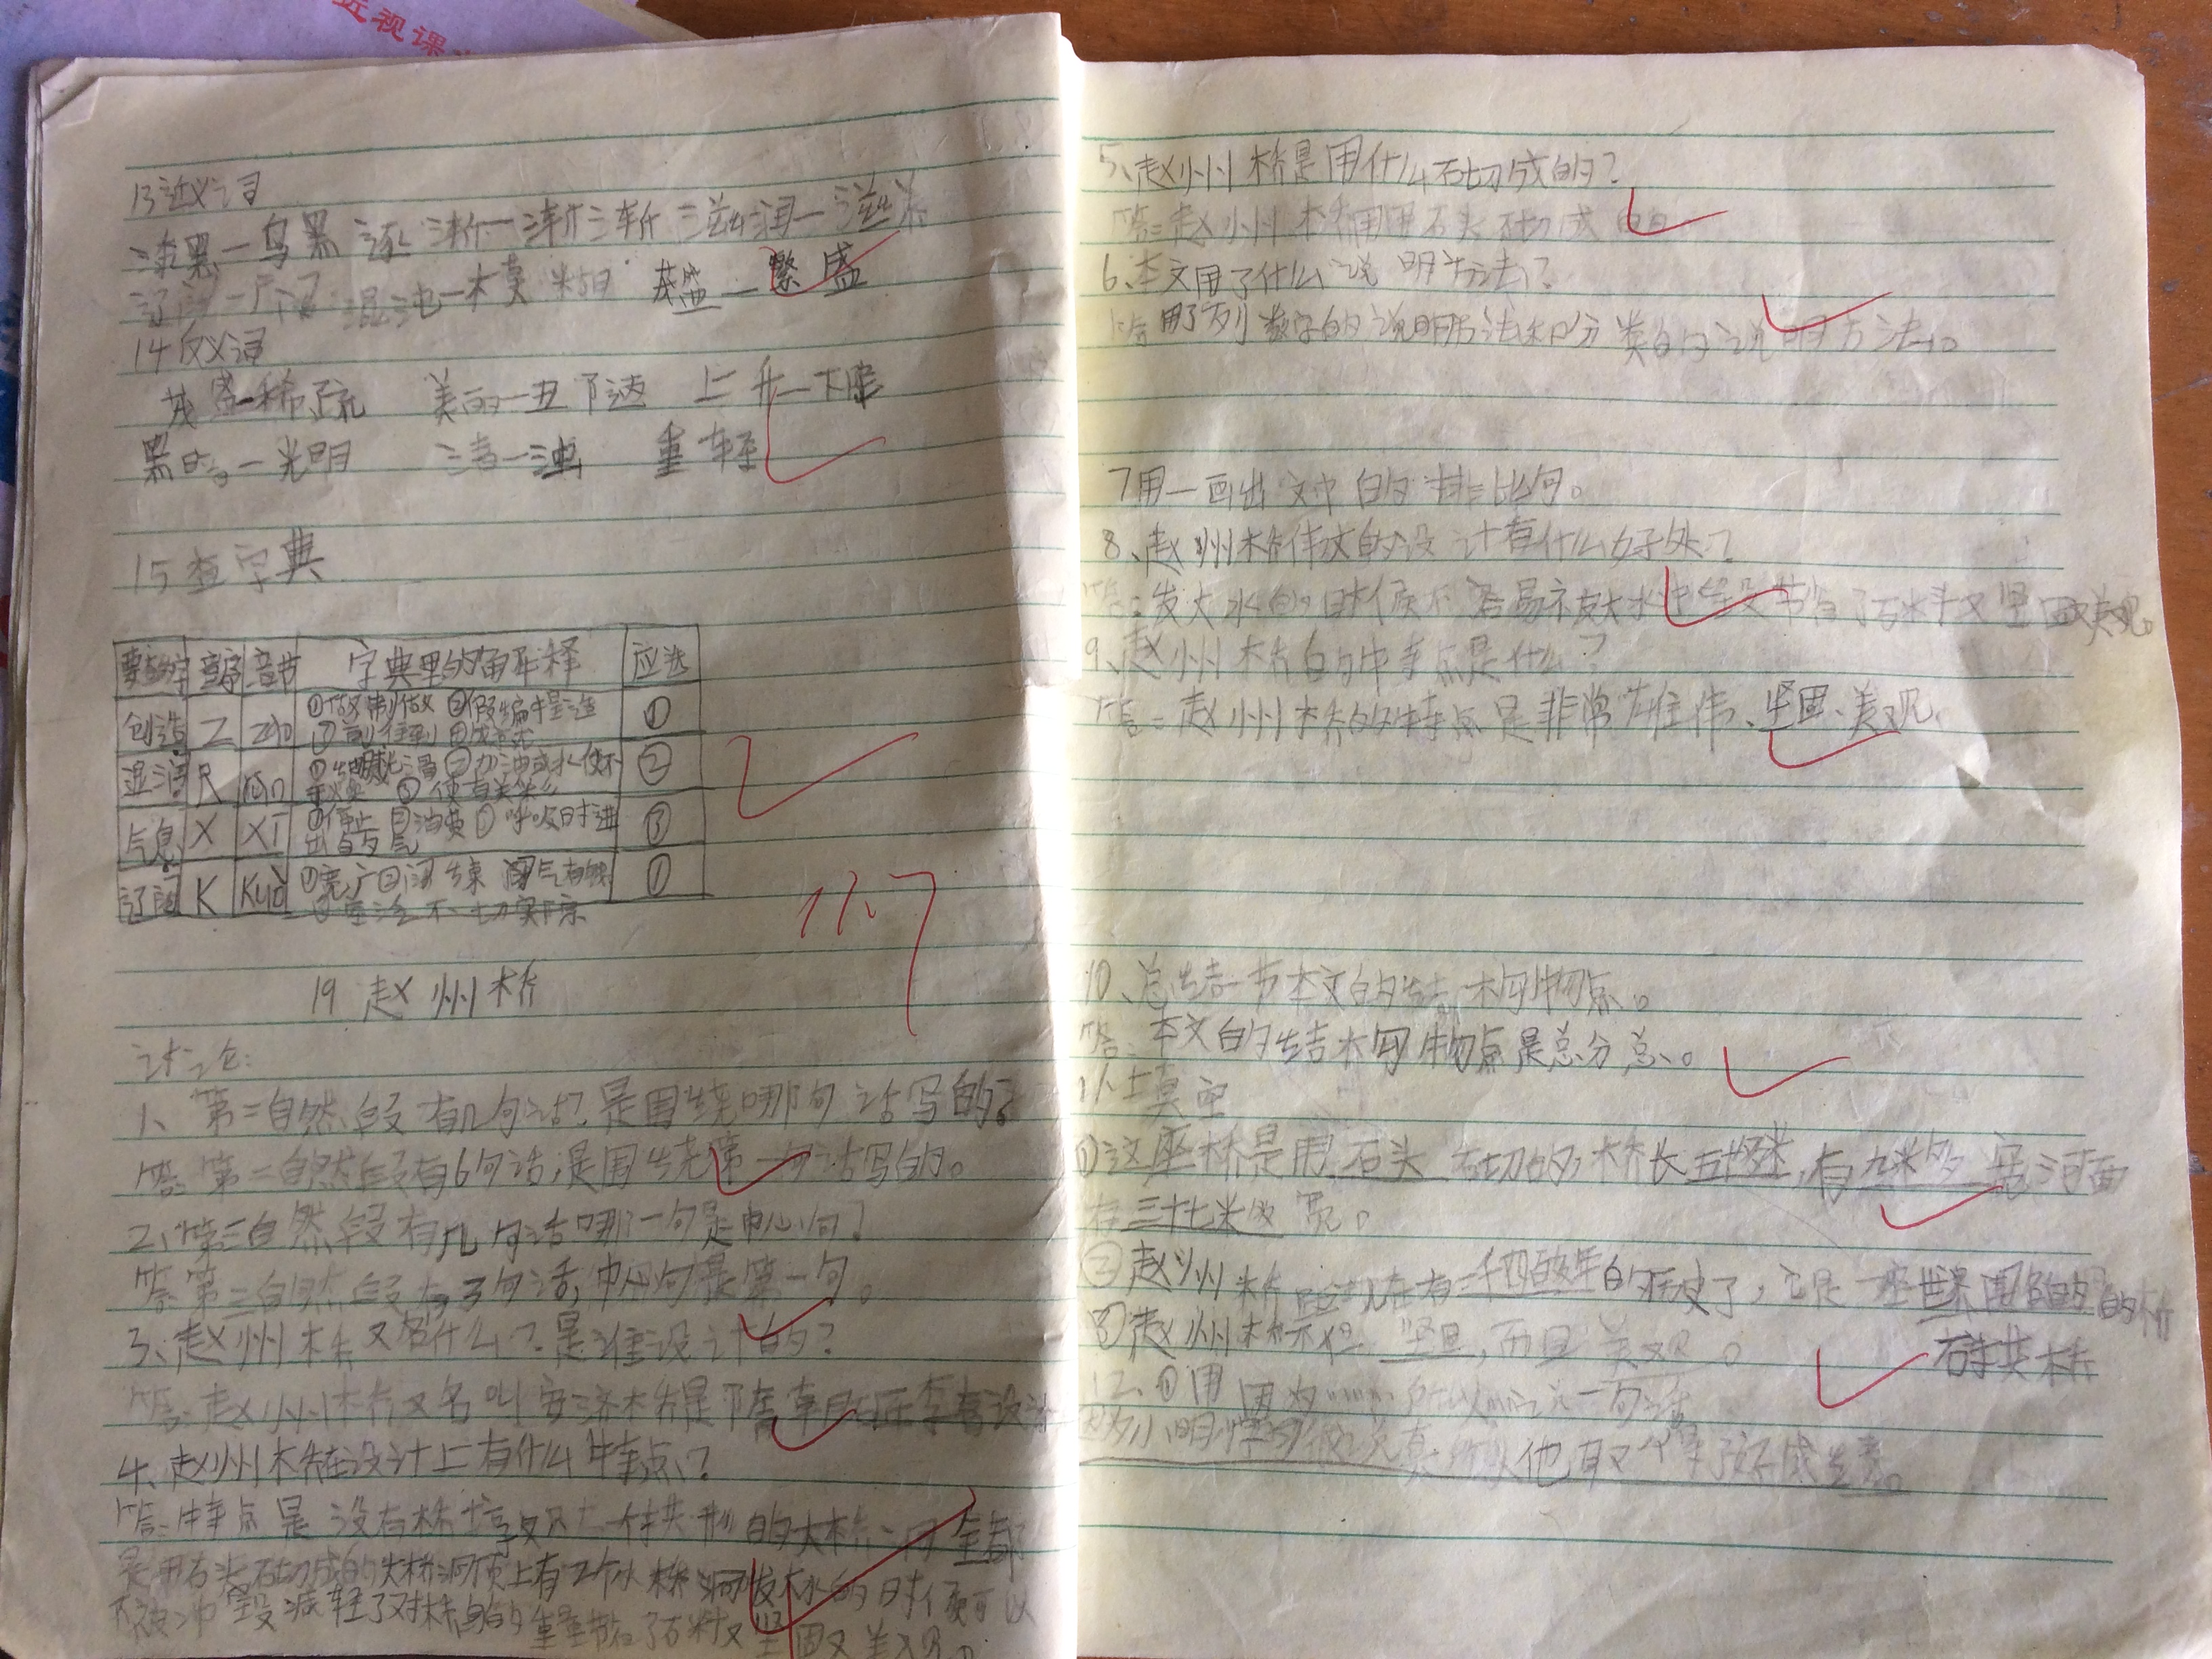 近视课
13近义词
漆黑—乌黑 逐渐—渐渐 滋润—滋养
辽阔— 混浊—模糊 茂盛—繁盛
14反义词
茂密—稀疏 美的—丑陋 上升—下降
黑的—光明 清—浊 重 轻
15查字典
要查的字 音序 音节 字典里的解释 应选
创造 Z zào ①做制做 ②假编捏造 ①
③前往到 ④成就
湿润 R rùn ①细腻光滑 ②加油或水使不 ②
干燥 ③使有光彩
气息 X xī ①停止 ②消费 ③呼吸时进 ③
出的气
辽阔 K kuò ①宽广 ②阔绰 阔气有钱 ①
不切实际
11.7
19 赵州桥
讨论:
1、第二自然段有几句话?是围绕哪句话写的?
答:第二自然段有6句话,是围绕第一句话写的。
2、第三自然段有几句话哪一句是中心句?
答:第三自然段有3句话,中心句是第一句。
3、赵州桥又名什么?是谁设计的?
答:赵州桥又名叫安济桥是隋朝石匠李春设计
4、赵州桥在设计上有什么特点?
答:特点是没有桥墩只有一个拱形的大桥洞全都
是用石头砌成的大桥洞顶上有4个小桥洞发大水的时候可以
不被冲毁减轻了对桥身的重量节省了石料又坚固又美观。
5、赵州桥是用什么砌成的?
答:赵州桥用石头砌成的
6、本文用了什么说明方法?
答 用了列数字的说明方法和分类的说明方法。
7用—画出文中的排比句。
8、赵州桥这样的设计有什么好处?
答:发大水的时候不容易被大水冲毁节省了石料又坚固又美观。
9、赵州桥的特点是什么?
答:赵州桥的特点是非常雄伟、坚固、美观。
10、总结一节本文的结构特点。
答:本文的结构特点是总分总。
11、填空
①这座桥是用石头砌的,桥长五十多米,有九米多宽河面
有三十七米多宽。
②赵州桥 现在有一千四百多年的历史了,它是一座世界闻名的 的桥
石拱桥
③赵州桥不但坚固,而且美观。
12、①用因为……所以……说一句话
因为小明学习很认真,所以他取得了好成绩。